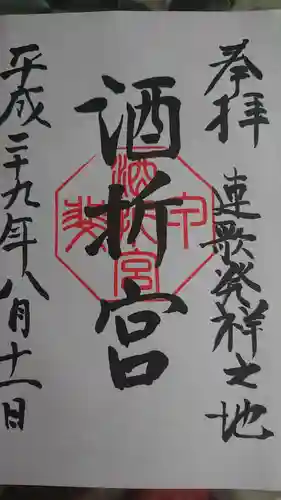 奉拝 連歌発祥之地
酒折宮
平成二十九年八月十一日